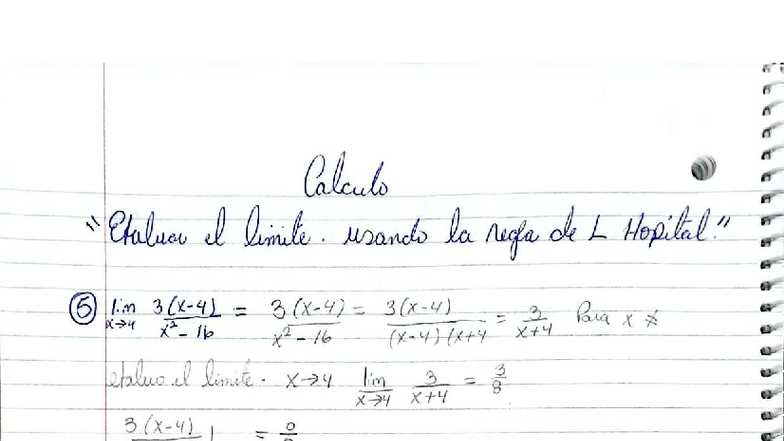 Calculo
"Evaluar el limite. usando la regla de L Hopital."
⑤ lim x→4 3(x-4)/x²-16 = 3(x-4)/x²-16 = 3(x-4)/(x-4)(x+4 = 3/x+4 Para x ≠
evaluo el limite. x→4 lim x→4 3/x+4 = 3/8
3(x-4) | = 0